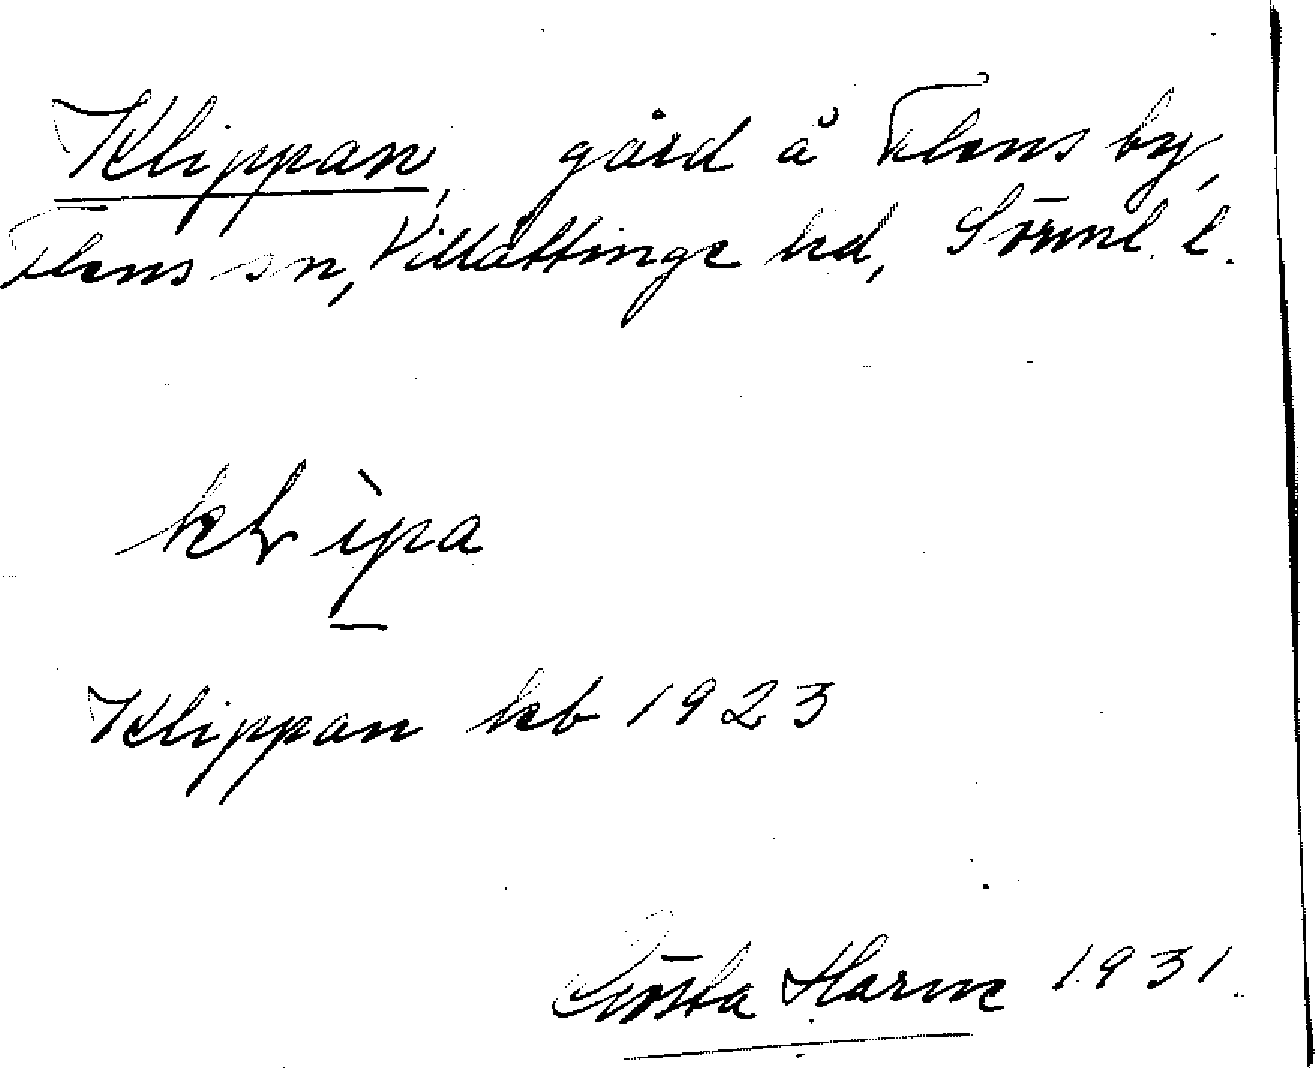 Klippan, gård å Flens by,
Flens sn, Villåttinge hd, Sörml. l.
klìpa
Klippan kb 1923
Gösta Harne 1931.